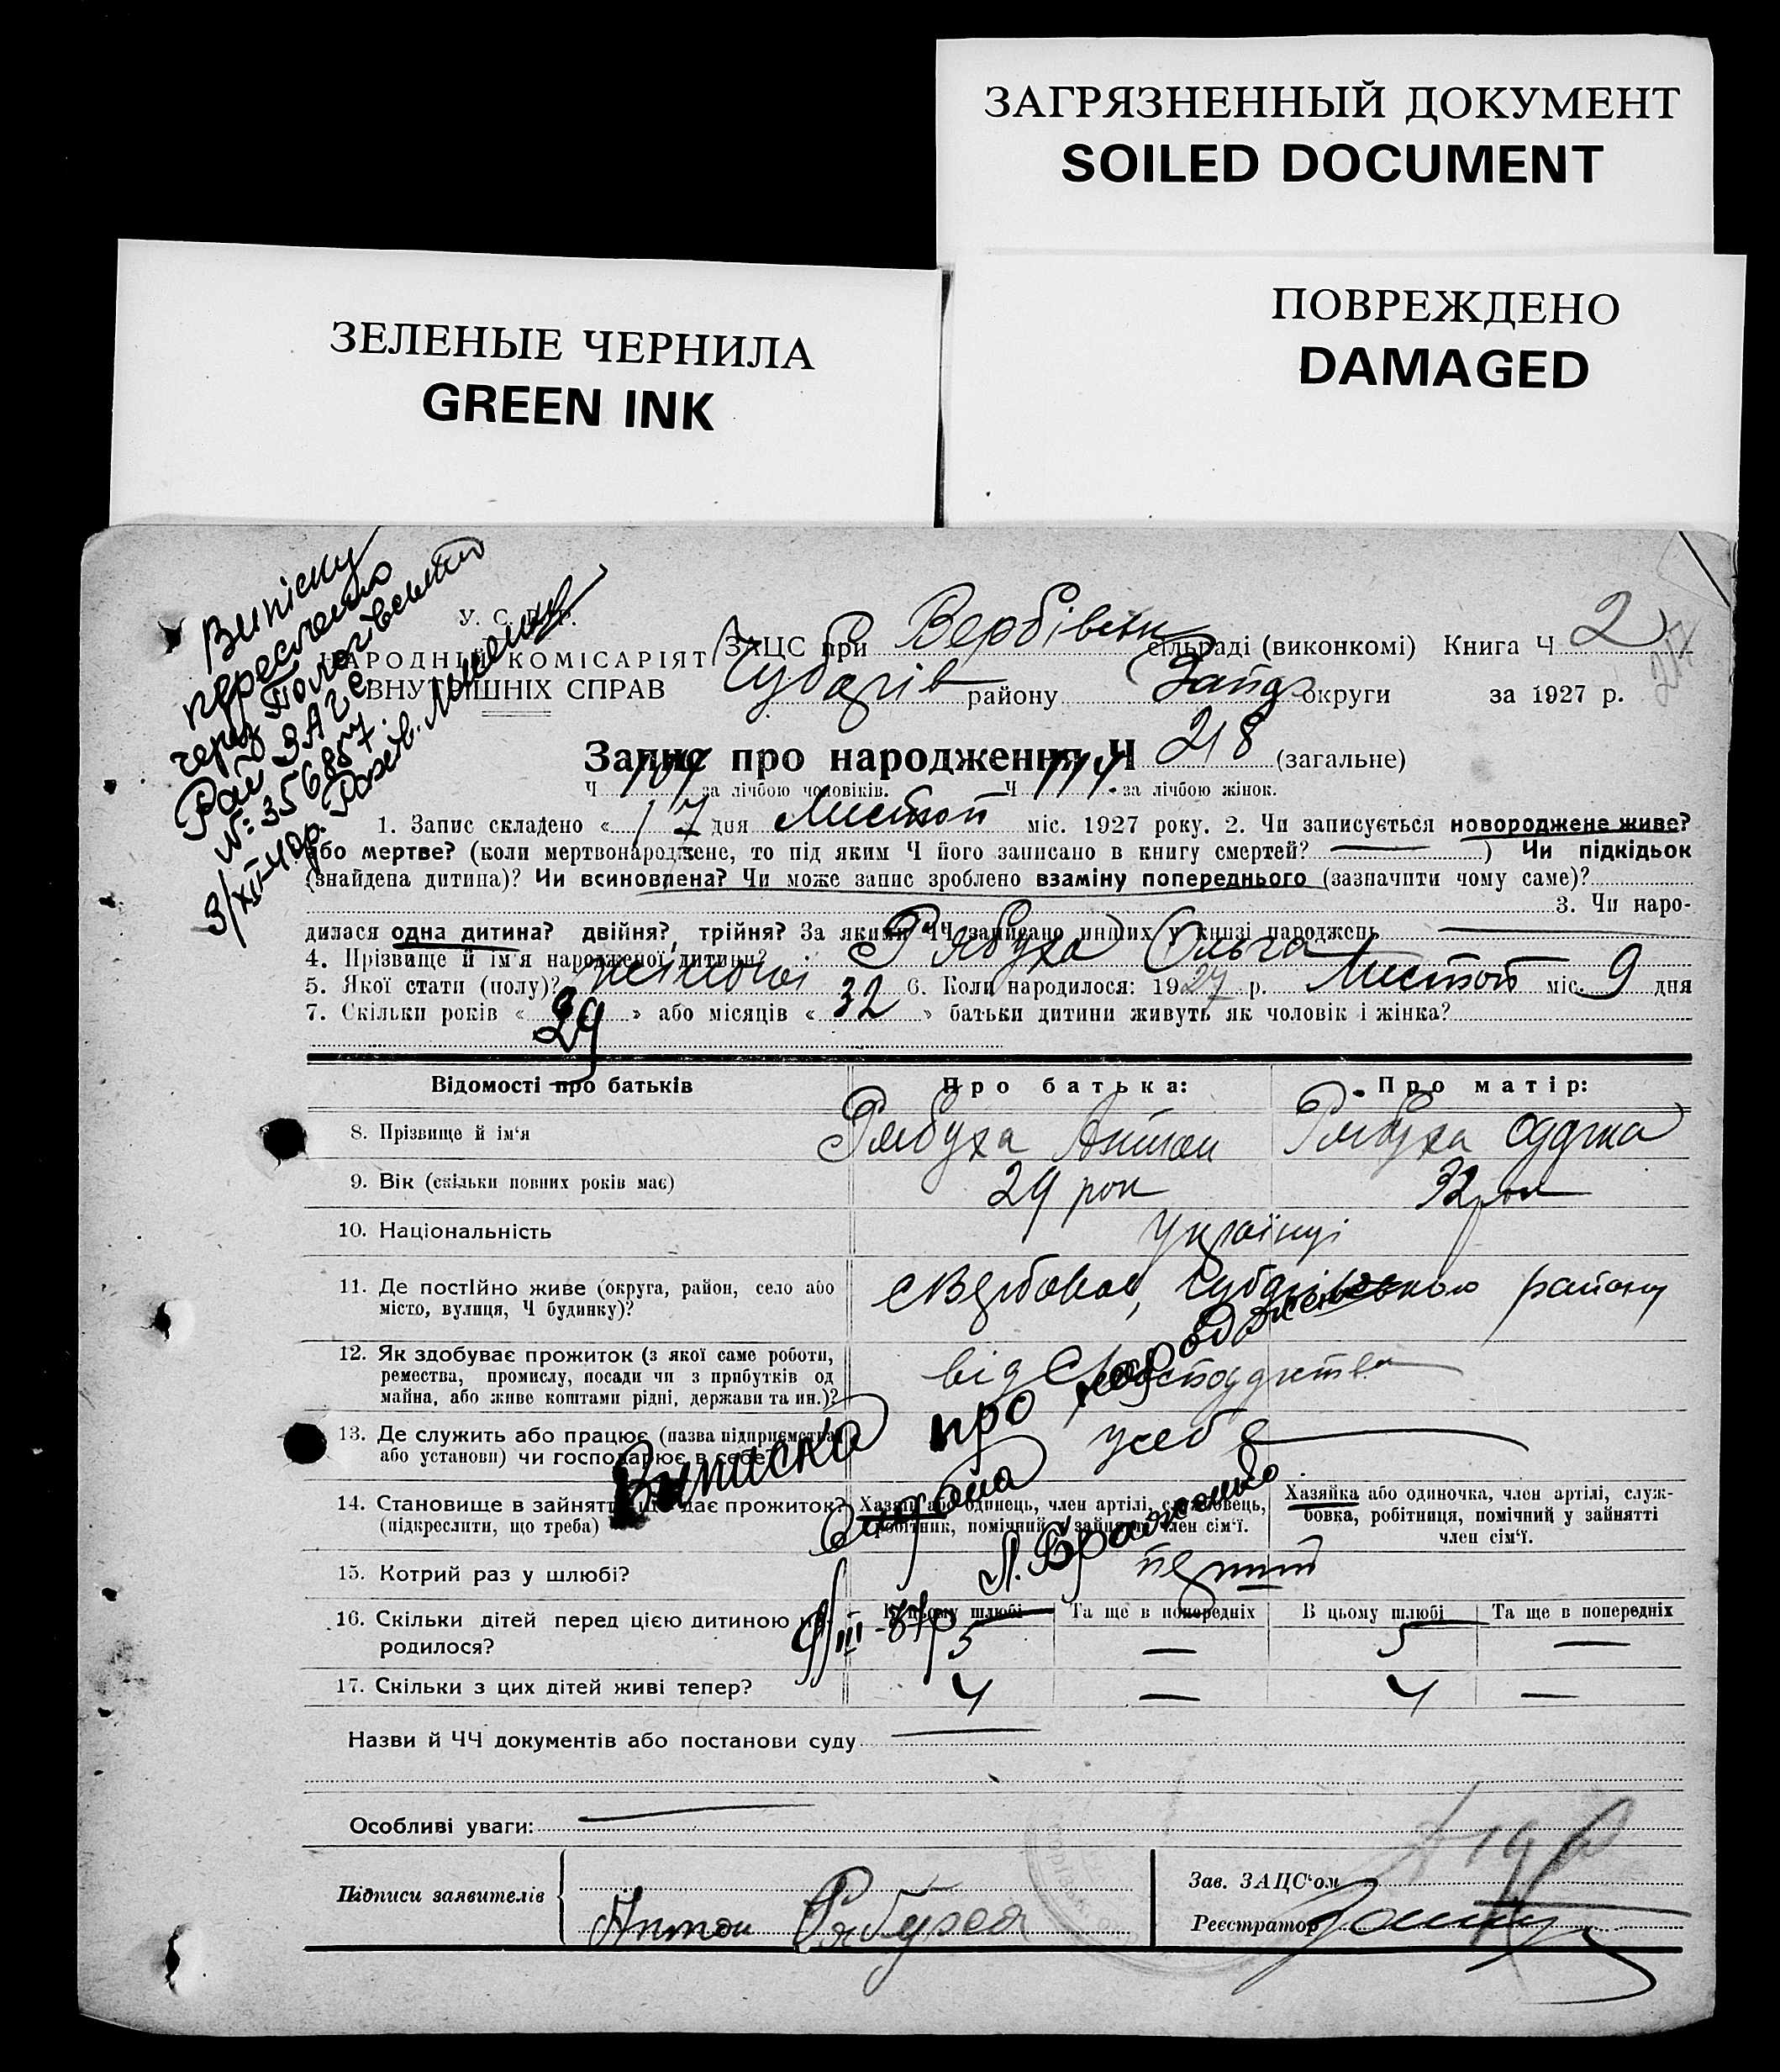 ЗАГРЯЗНЕННЫЙ ДОКУМЕНТ
SOILED DOCUMENT
ЗЕЛЕНЫЕ ЧЕРНИЛА
GREEN INK
ПОВРЕЖДЕНО
DAMAGED
Виписку
переслано
через Пологівський
Рай ЗАГС
№ 356857.
3/XII-40р.
У. С. Р. Р.
НАРОДНІЙ КОМІСАРІЯТ
ВНУТРІШНІХ СПРАВ
ЗАЦС при Вербівськ сільраді (виконкомі) Книга Ч 2
Чубарів району Запор округи за 1927 р.
217
Запис про народження Ч 218 (загальне)
Ч 104 за лічбою чоловіків. Ч 114 за лічбою жінок.
1. Запис складено « 17 дня Листоп міс. 1927 року. 2. Чи записується новороджене живе?
або мертве? (коли мертвонароджене, то під яким Ч його записано в книгу смертей? ) Чи підкідьок
(знайдена дитина)? Чи всиновлена? Чи може запис зроблено взаміну попереднього (зазначити чому саме)?
3. Чи наро-
дилася одна дитина? двійня?, трійня? За якими ЧЧ записано инших у книзі народжень
4. Прізвище й ім'я народженої дитини? Рябуха Ольга
5. Якої стати (полу)? жіночої 6. Коли народилося: 1927 р. Листоп міс. 9 дня
7. Скільки років « 29 » або місяців « 32 » батьки дитини живуть як чоловік і жінка?
Відомості про батьків Про батька: Про матір:
8. Прізвище й ім'я Рябуха Антон Рябуха
9. Вік (скільки повних років має) 29 рок 32 рок
10. Національність Українці
11. Де постійно живе (округа, район, село або
місто, вулиця, Ч будинку)? с Вербове, Чубарівського району
12. Як здобуває прожиток (з якої саме роботи,
ремества, промислу, посади чи з прибутків од
майна, або живе коштами рідні, держави та ин.)? від С господарства
13. Де служить або працює (назва підприємства
або установи) чи господарює в себе? усебе
Виписка про народження
видана
Л. Браженко
9/III-37р
14. Становище в зайнятті, що дає прожиток?
(підкреслити, що треба)
Хазяїн або одинець, член артілі, службовець,
робітник, помічний у зайнятті член сім'ї.
Хазяйка або одиночка, член артілі, служ-
бовка, робітниця, помічний у зайнятті
член сім'ї.
15. Котрий раз у шлюбі? перший
16. Скільки дітей перед цією дитиною на-
родилося?
В цьому шлюбі Та ще в попередніх В цьому шлюбі Та ще в попередніх
5 — 5 —
17. Скільки з цих дітей живі тепер? 4 — 4 —
Назви й ЧЧ документів або постанови суду
Особливі уваги:
Підписи заявителів
Антон Рябуха
Зав. ЗАЦС'ом
Реєстратор